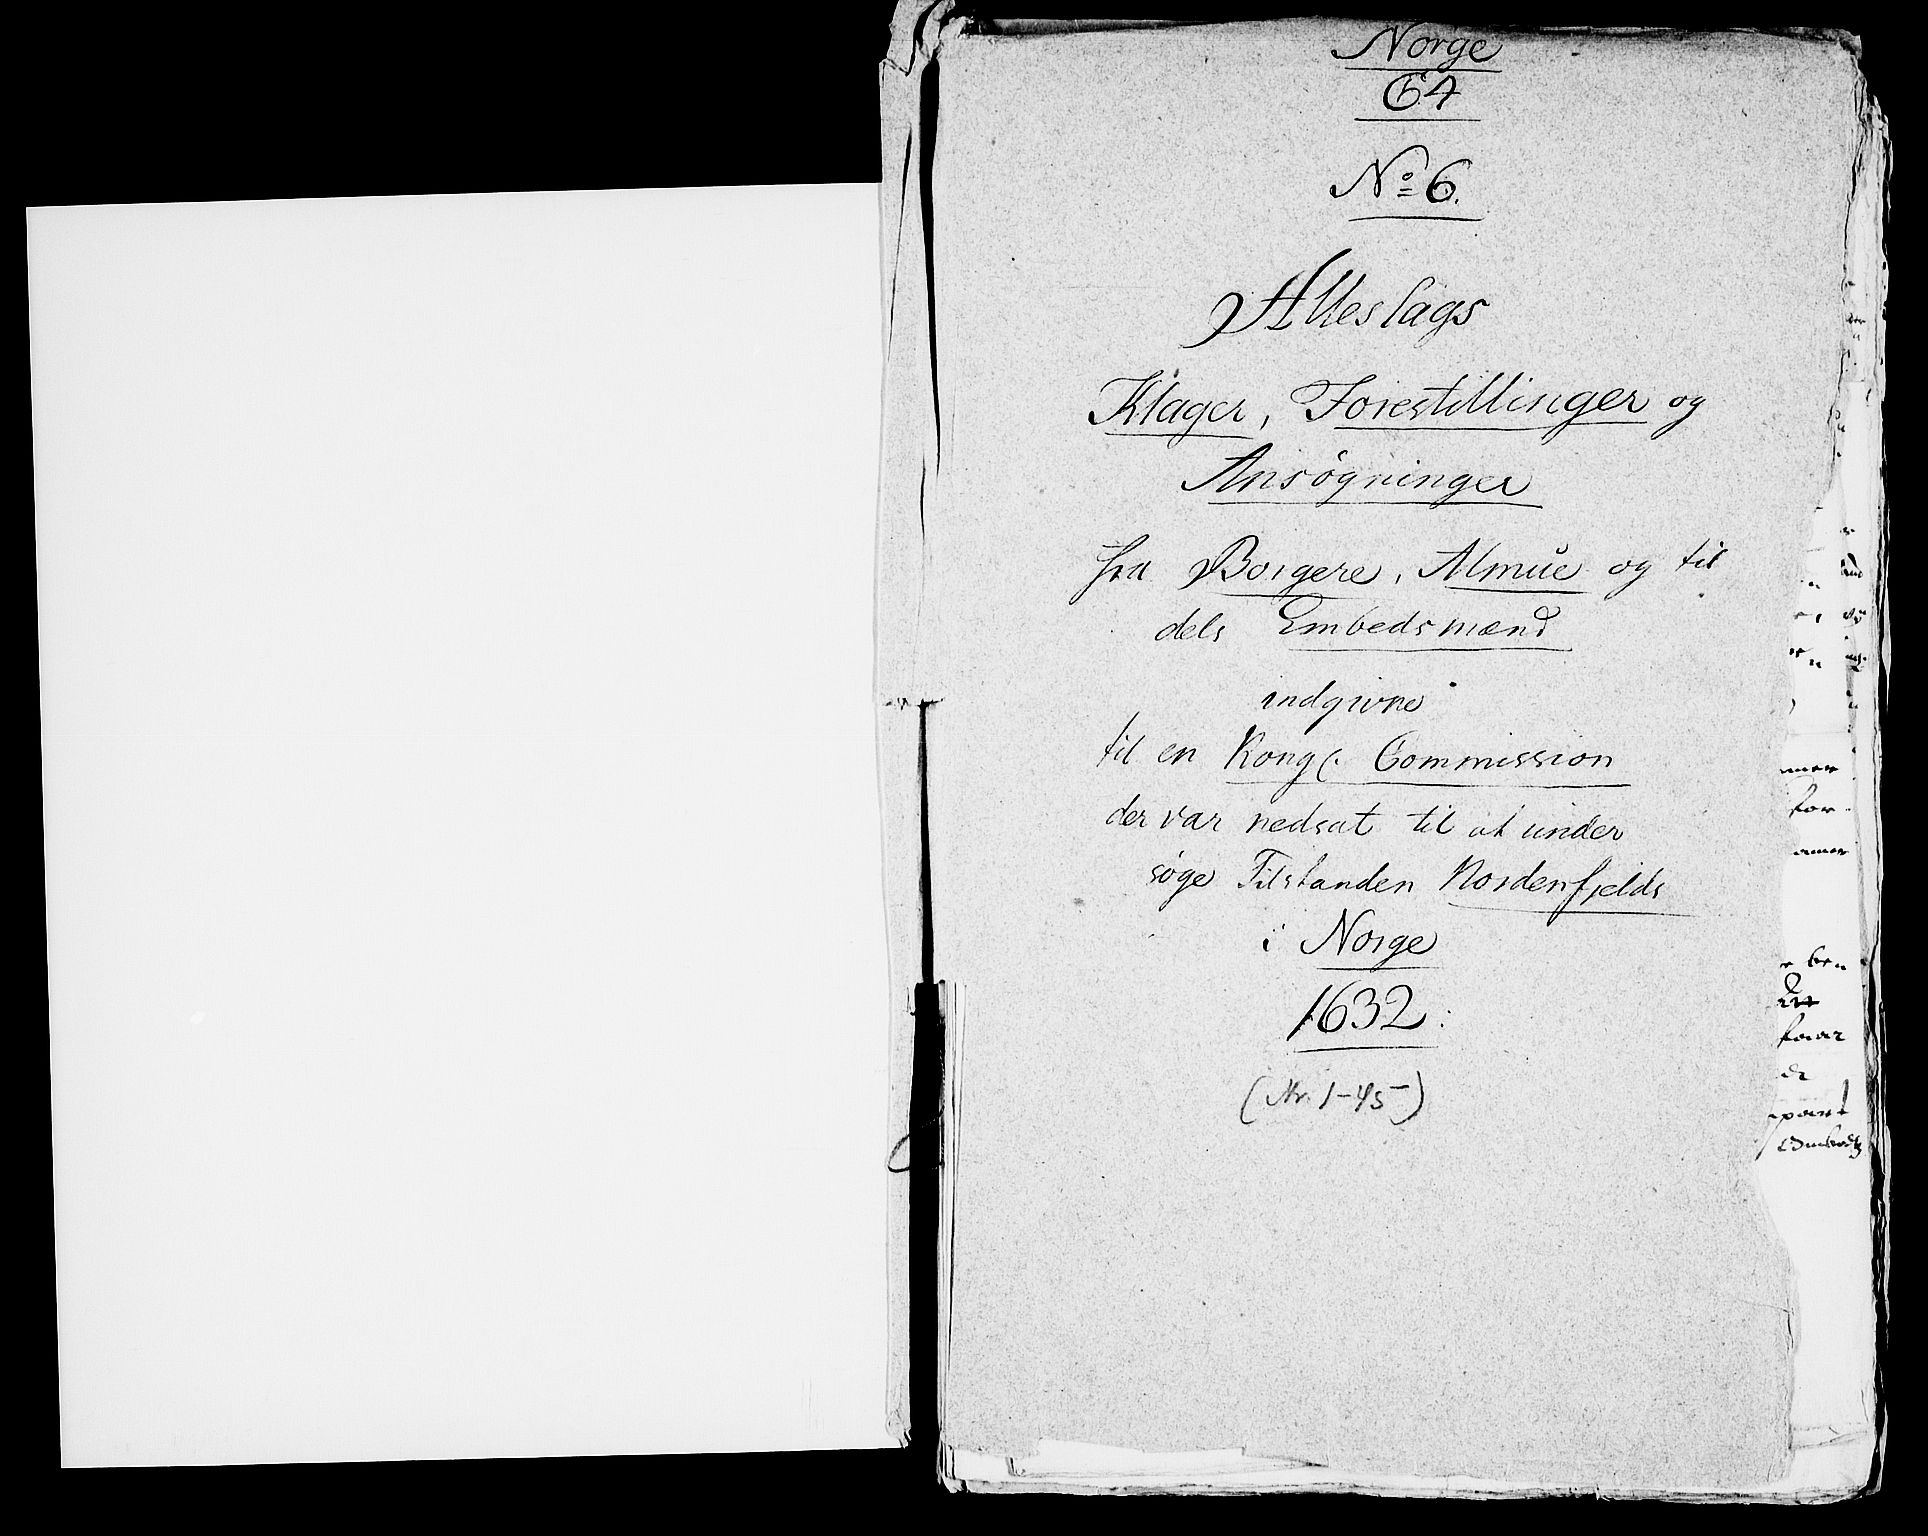 Norge
64
No 6.
Alleslags
Klager, Forestillinger og
Ansøgninger
fra Borgere, Almue og til
dels Embedsmænd
indgivne
til en Kongl. Commission
der var nedsat til at under
søge Tilstanden Nordenfjelds
i Norge
1632:
(Nr. 1-45)
for
amer
faar